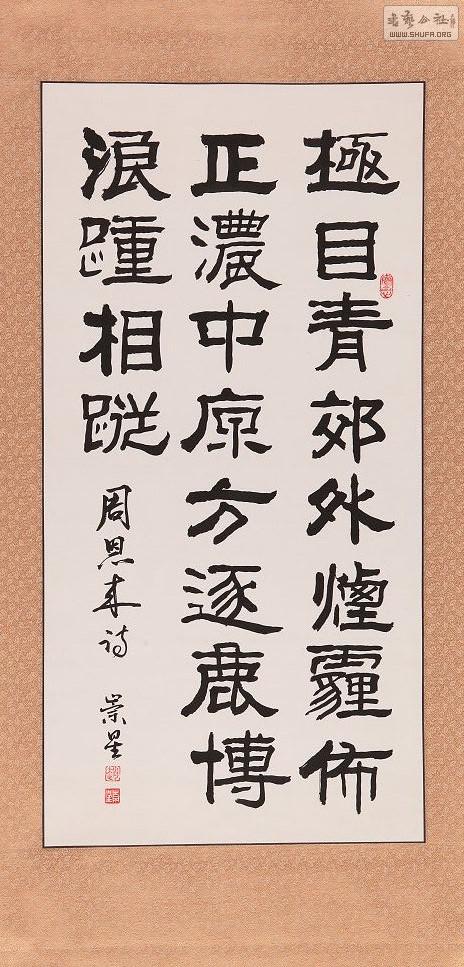 極目青郊外煙霾佈
正濃中原方逐鹿博
浪踵相蹤
周恩来诗
崇星
書藝公社
WWW.SHUFA.ORG